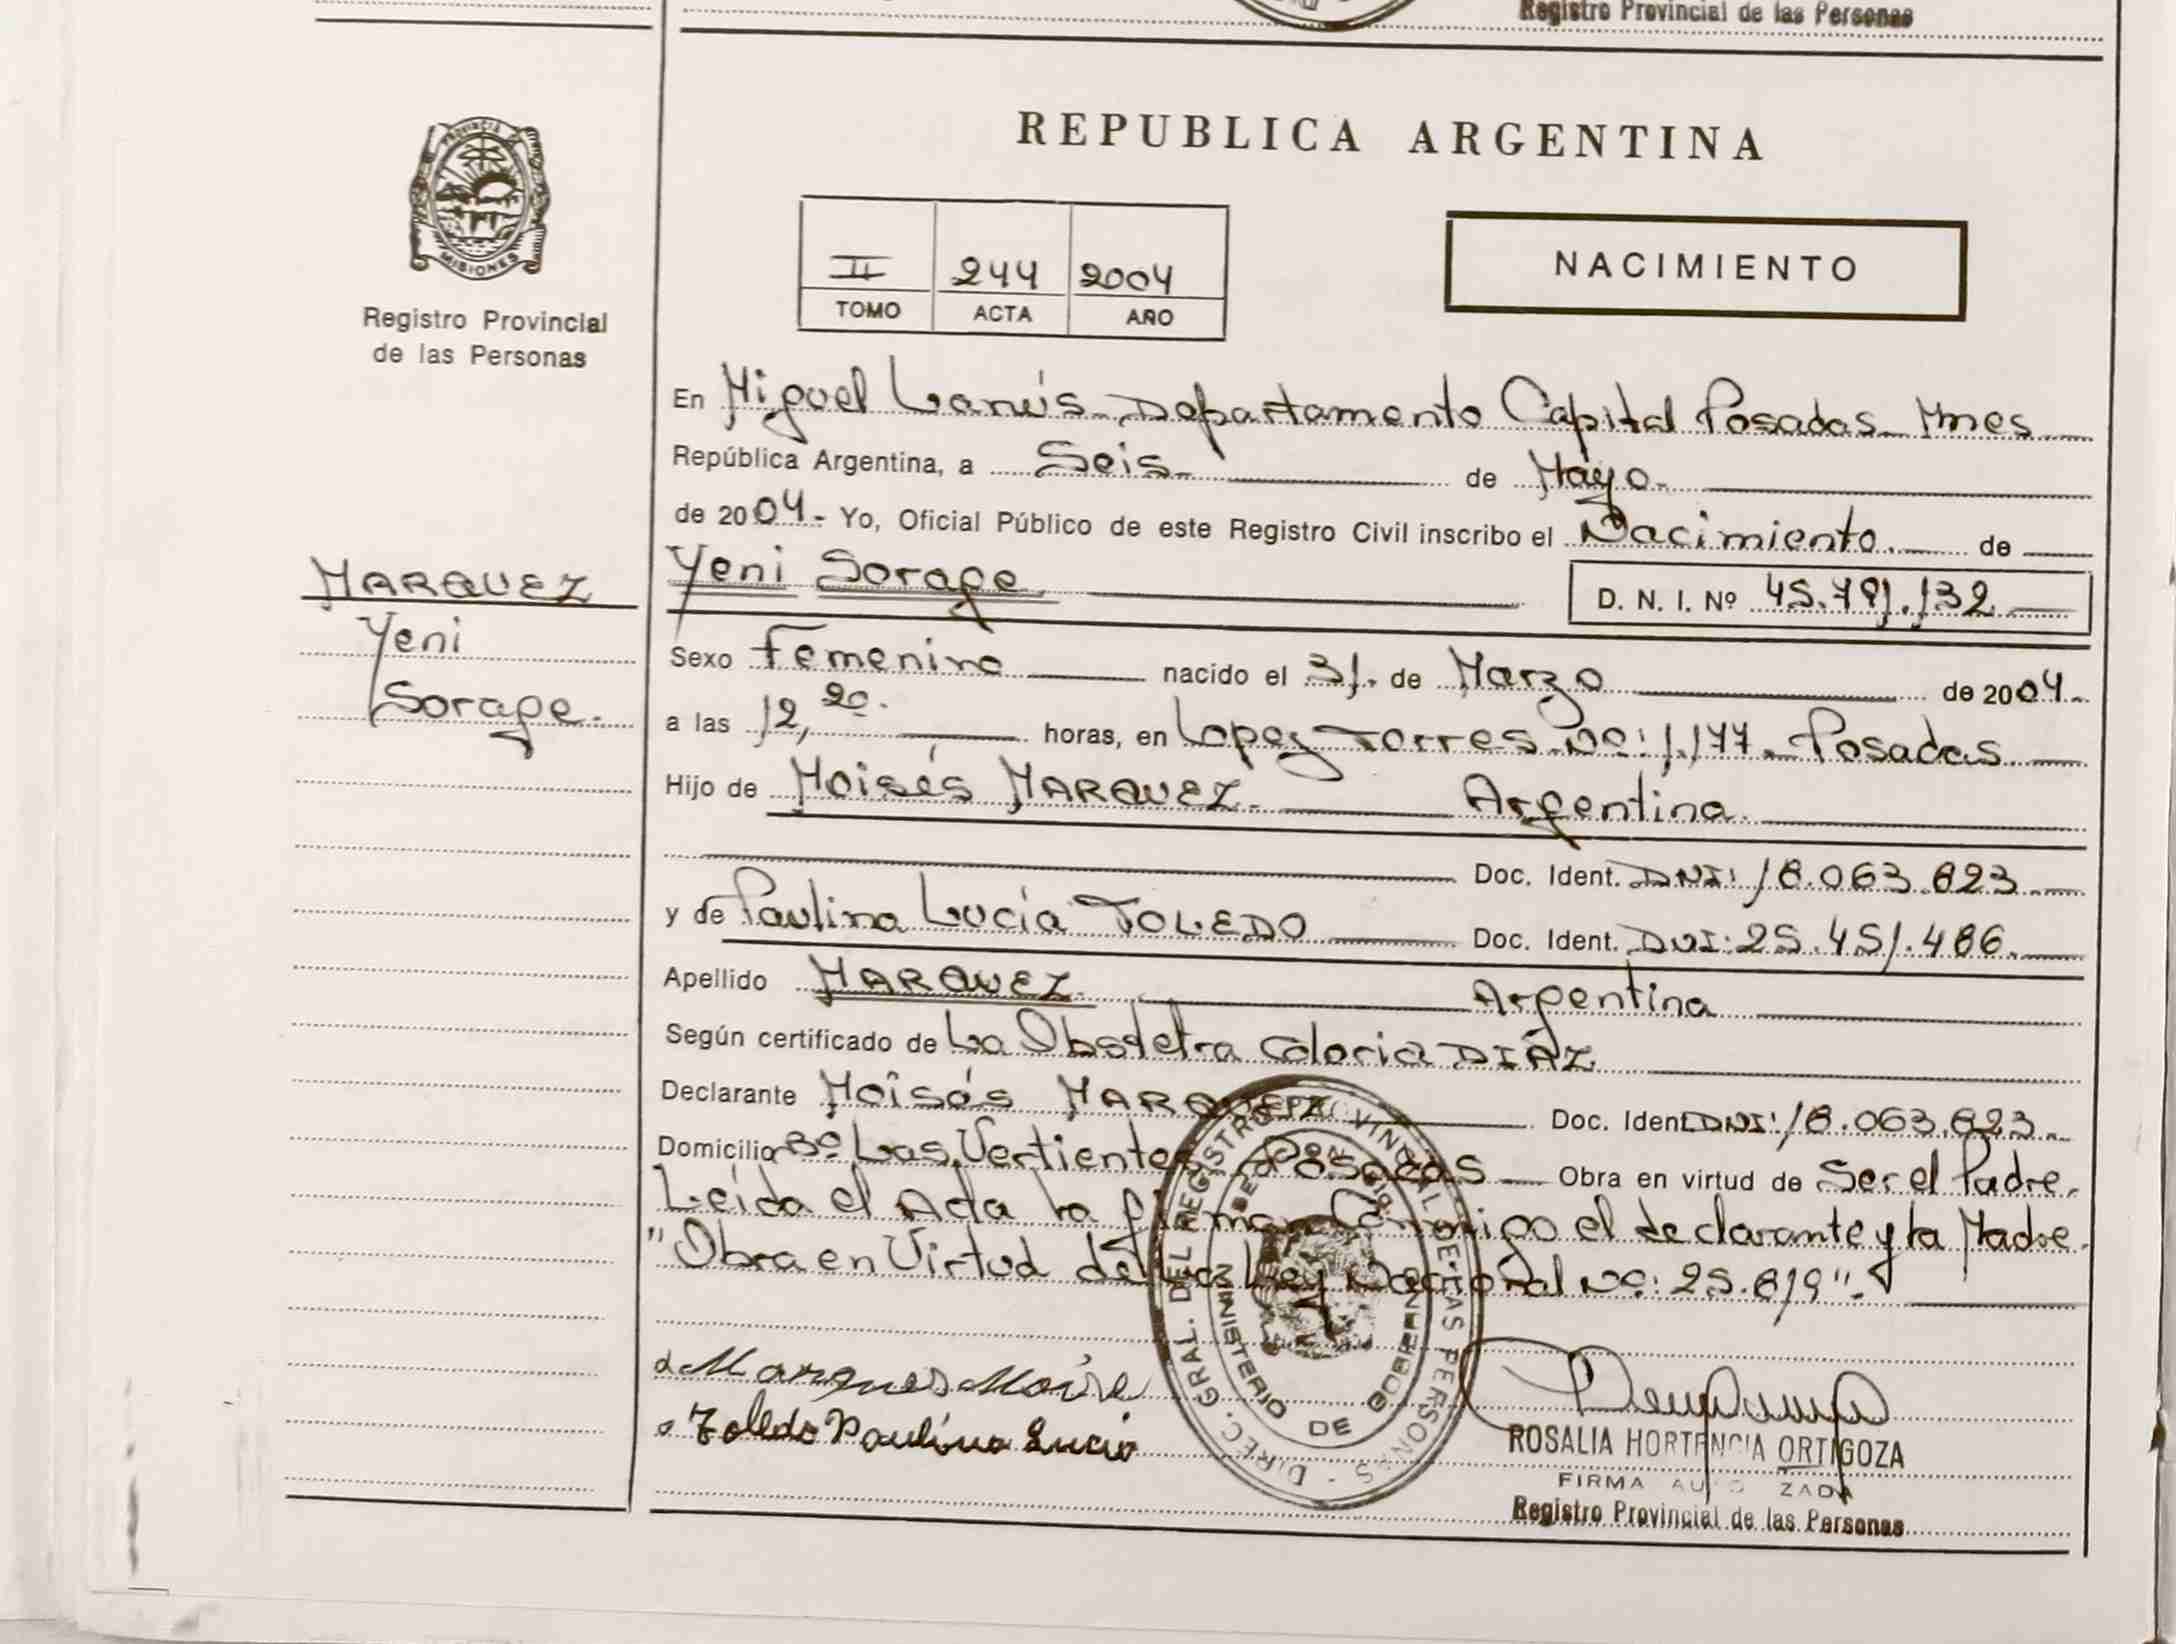 Registro Provincial de las Personas
PROVINCIA DE
MISIONES
Registro Provincial
de las Personas
REPUBLICA ARGENTINA
II 244 2004
TOMO ACTA AÑO
NACIMIENTO
En Miguel Lanús Departamento Capital Posadas Mnes
República Argentina, a Seis de Mayo.
de 2004.- Yo, Oficial Público de este Registro Civil inscribo el Nacimiento. de
MARQUEZ
Yeni
Sorage.
Yeni Sorage D. N. I. Nº 45.791.132
Sexo Femenino nacido el 31. de Marzo de 2004.-
a las 12,20. horas, en Lopez Torres No: 1.177. Posadas.
Hijo de Moisés MARQUEZ. Argentina.
Doc. Ident. DNI: 18.063.823
y de Paulina Lucía TOLEDO Doc. Ident. DNI: 25.451.486.
Apellido MARQUEZ. Argentina
Según certificado de La Obstetra Gloria DIAZ
Declarante Moisés MARQUEZ Doc. Ident DNI: 18.063.823.
Domicilio Bº Las Vertientes Posadas Obra en virtud de Ser el Padre.
Leída el Acta la firman Conmigo el declarante y la Madre.
"Obra en Virtud de la Ley Nacional No: 25.819".
DIREC. GRAL. DEL REGISTRO PROVINCIAL DE LAS PERSONAS
MINISTERIO DE GOBIERNO
Toledo Paulina Lucia
ROSALIA HORTENCIA ORTIGOZA
FIRMA AUTORIZADA
Registro Provincial de las Personas